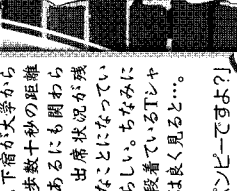 下宿が大学から
歩数十秒の距離
あるにも関わら
出席状況が残
なことになってい
らしい。ちなみに
段着ているTシャ
は良く見ると…。
ンピーですよ?」